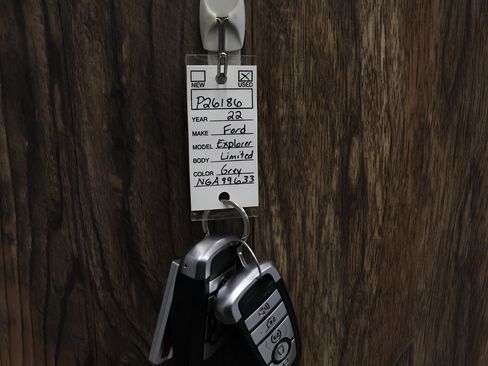 NEW USED
P26186
YEAR 22
MAKE Ford
MODEL Explorer
BODY Limited
COLOR Grey
NGA99633